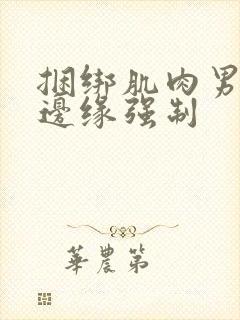 捆绑肌肉男
邊缘强制
華農第